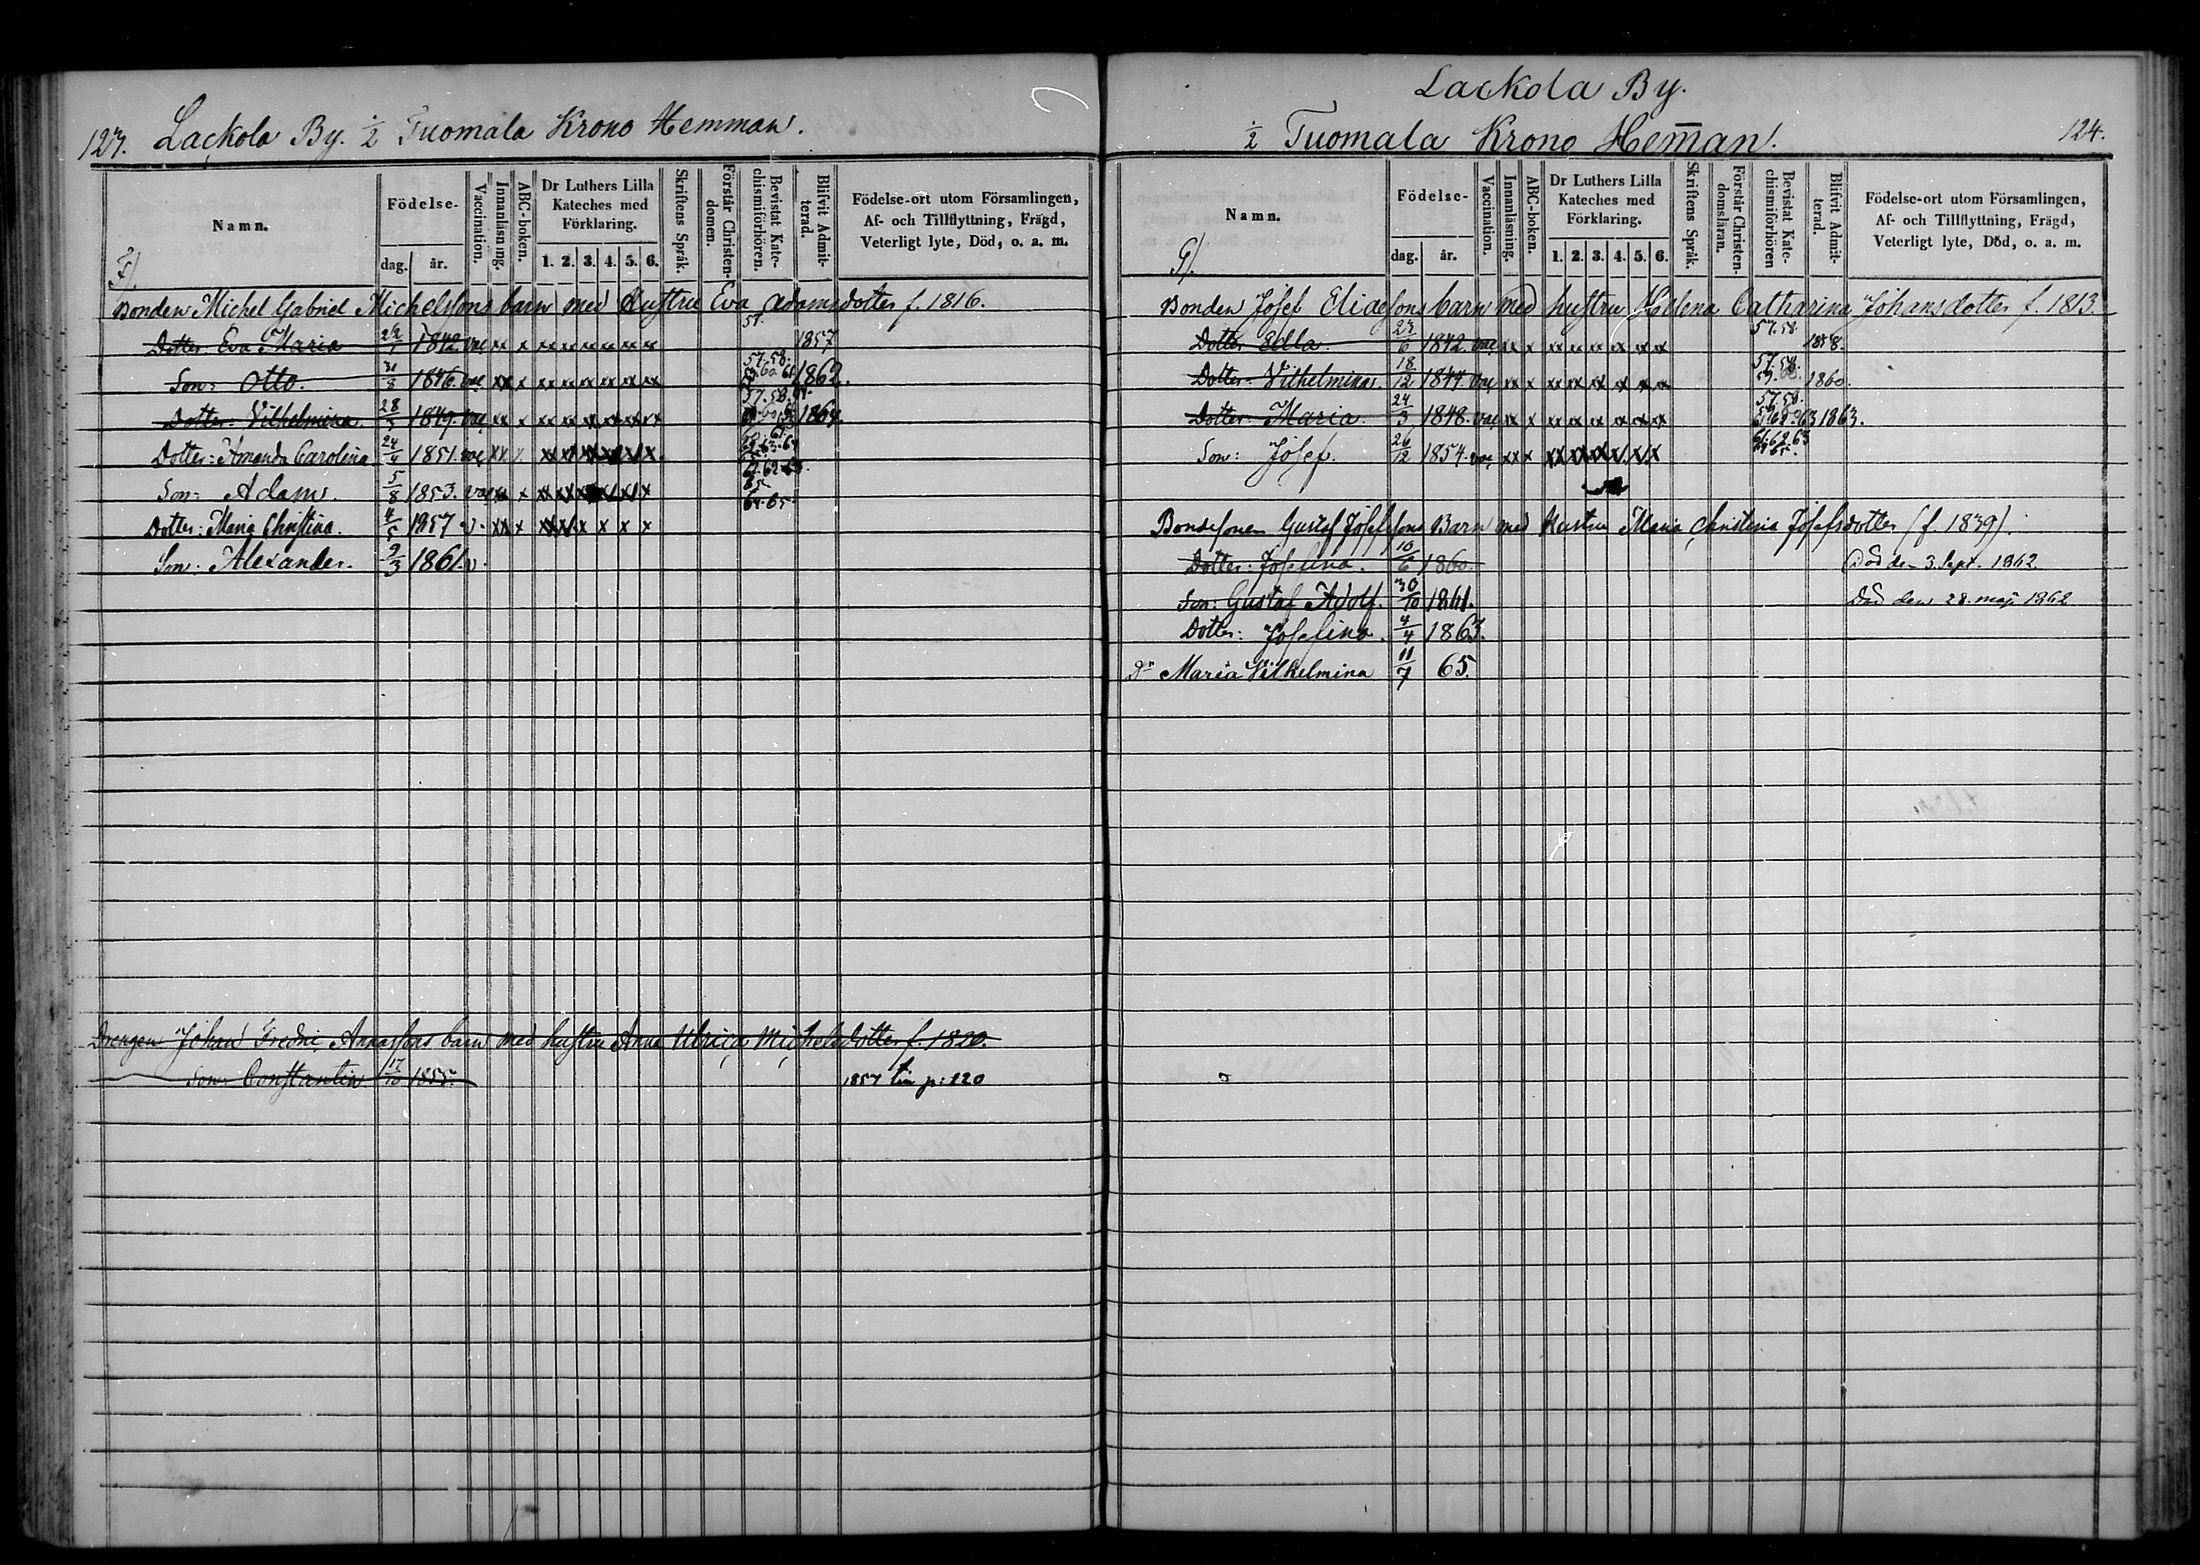 123. Lackola By. 1/2 Tuomala Krono Hemman.
Namn.
Födelse-
dag. år.
Vaccination.
Innanläsning.
ABC-boken.
Dr Luthers Lilla Kateches med Förklaring.
1. 2. 3. 4. 5. 6.
Skriftens Språk.
Förstår Christen-domen.
Bevistat Kate-chismiförhören.
Blifvit Admit-terad.
Födelse-ort utom Församlingen, Af- och Tillflyttning, Frägd, Veterligt lyte, Död, o. a. m.
F).
Bonden Michel Gabriel Michelssons barn med Hustru Eva Adamsdotter f. 1816.
Dotter: Eva Maria 1842. vac x x x x x x x x 57. 1857
Son: Otto. 1846. vac xx x xx xx xx xx xx xx 57. 58. 60. 61 1862.
Dotter: Vilhelmina 28/3 1849. vac xx x xx xx xx xx xx xx 57. 58. 1864
Dotter: Amanda Carolina 24/4 1851. vac xx x xx xx xx xx xx x. 63. 64
Son: Adam. 5/8 1853. vac xx x xx xx xx xx xx x 62. 63. 65
Dotter: Maria Christina. 4/5 1857 v. xx x xx xx x x x x 64. 65.
Son: Alexander. 9/3 1861. v.
Drengen Johan Fredric Anderssons barn med hustru Anna Ulrica Michelsdotter f. 1820.
Son: Constantin 17/10 1855. 1857 till p: 120
Lackola By.
1/2 Tuomala Krono Hem̄an. 124.
Namn.
Födelse-
dag. år.
Vaccination.
Innanläsning.
ABC-boken.
Dr Luthers Lilla Kateches med Förklaring.
1. 2. 3. 4. 5. 6.
Skriftens Språk.
Förstår Christen-domsläran.
Bevistat Kate-chismiförhören
Blifvit Admit-terad.
Födelse-ort utom Församlingen, Af- och Tillflyttning, Frägd, Veterligt lyte, Död, o. a. m.
G).
Bonden Josef Eliassons barn med hustru Helena Catharina Johansdotter f. 1813.
Dotter Ulla 23/6 1842. vac xx x xx xx xx xx xx xx 57. 58. 1858.
Dotter: Vilhelmina. 18/12 1844. vac xx x xx xx xx xx xx xx 57. 58. 59. 1860.
Dotter: Maria. 24/3 1848. vac xx x xx xx xx xx xx xx 57. 58. 63 1863.
Son: Josef. 26/12 1854. vac xx x xx xx xx x. x. x 61. 62. 63 65.
Bondesonen Gustaf Josefssons Barn med Hustru Maria Christina Josefsdotter (f. 1839).
Dotter: Josefina. 10/6 1860. Död den 3. Sept. 1862
Son: Gustaf Adolf. 30/10 1861. Död den 28. maji 1862
Dotter: Josefina. 4/4 1863.
Dr Maria Vilhelmina 11/7 65.